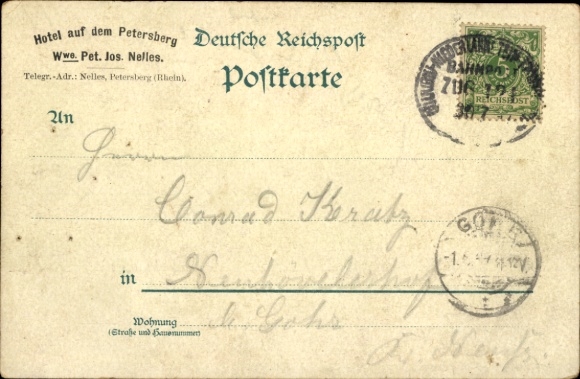 Hotel auf dem Petersberg
Wwe. Pet. Jos. Nelles.
Telegr.-Adr.: Nelles, Petersberg (Rhein).
Deutsche Reichspost
Postkarte
BAHNPOST
ZUG
REICHSPOST
An
Herrn
Conrad Kratz
GOHR
in
Neuhöveler hof
b. Gohr
Wohnung
(Straße und Hausnummer)